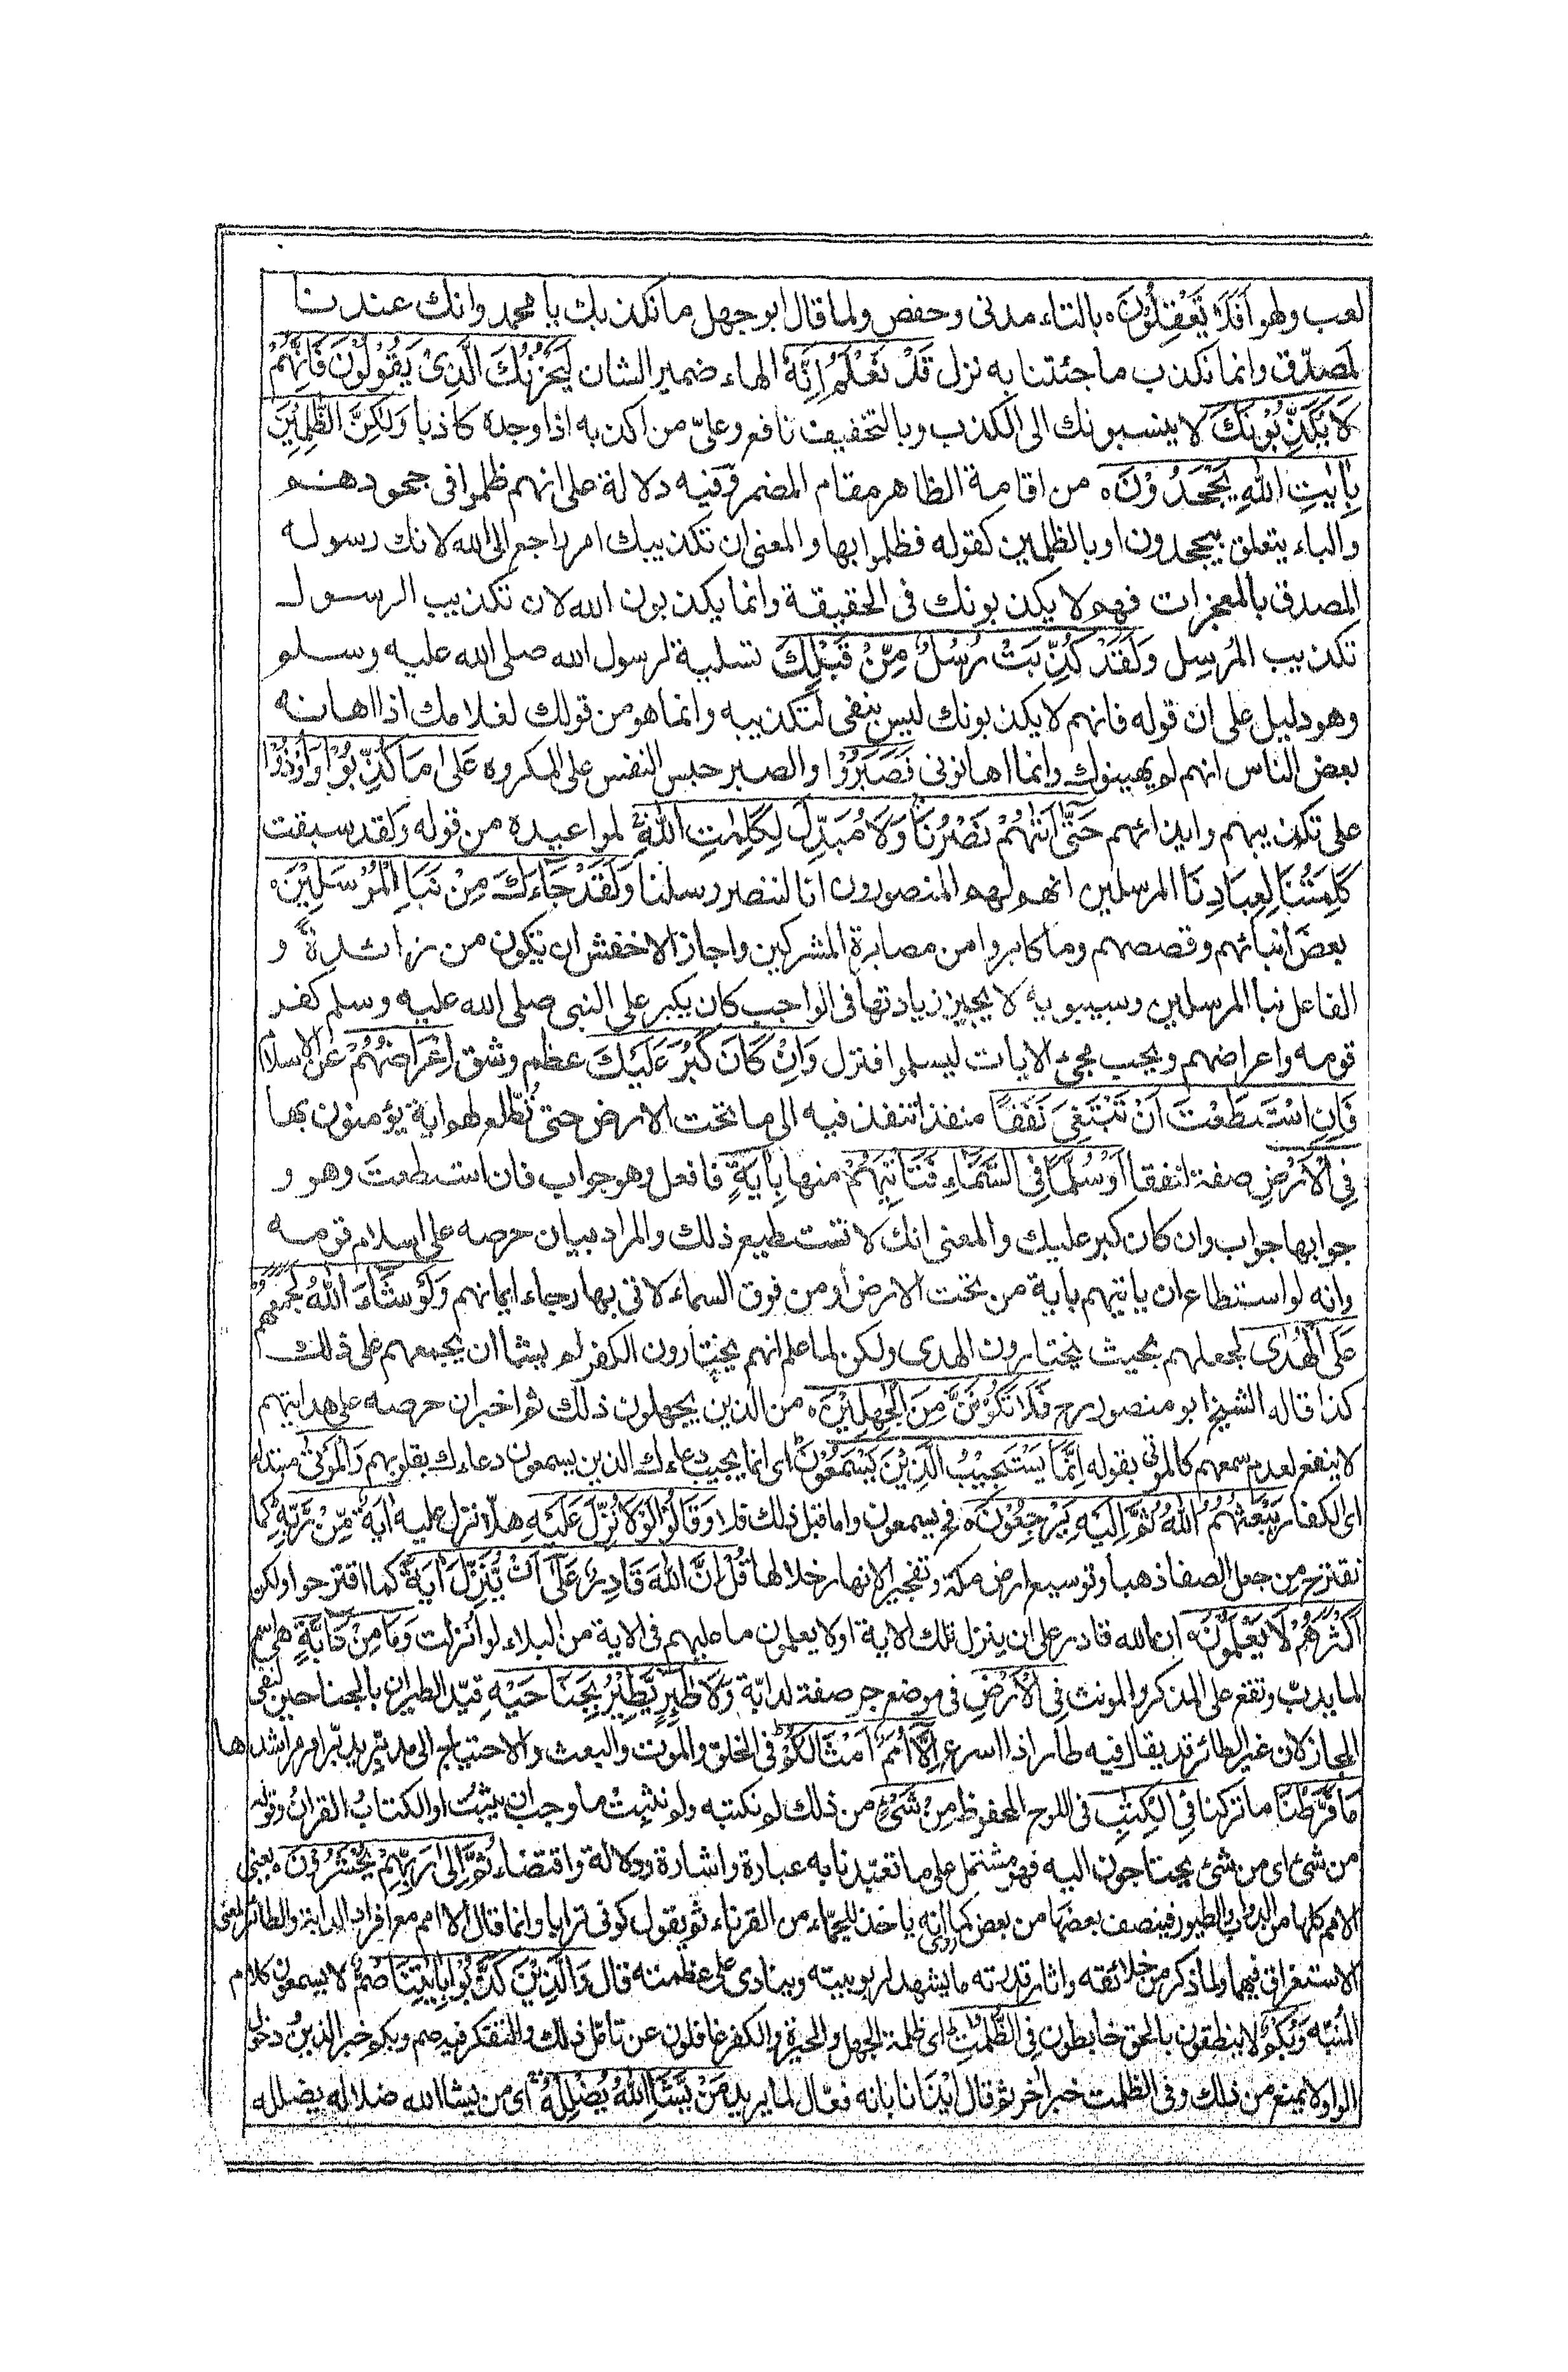 لعب ولهو اَفَلَا تَعْقِلُوْنَ ٥ بالتاء مدنى وحفص ولما قال ابو جهل ما نكذبك يا محمد وانك عندنا
لمصدّق وانما نكذب ما جئتنا به نزل قَدْ نَعْلَمُ اِنَّهٗ الهاء ضمير الشان لَيَحْزُنُكَ الَّذِىْ يَقُوْلُوْنَ فَاِنَّهُمْ
لَا يُكَذِّبُوْنَكَ لا ينسبونك الى الكذب وبالتخفيف نافع وعلىّ من اكذبه اذا وجده كاذبا وَلٰكِنَّ الظّٰلِمِيْنَ
بِاٰيٰتِ اللّٰهِ يَجْحَدُوْنَ ٥ من اقامة الظاهر مقام المضمر وفيه دلالة على انهم ظلموا فى جحودهم
والباء يتعلق بيجحدون او بالظلمين كقوله فظلموا بها والمعنى ان تكذيبك امر راجع الى الله لانك رسوله
المصدق بالمعجزات فهم لا يكذبونك فى الحقيقة وانما يكذبون الله لان تكذيب الرسول
تكذيب المُرسِل وَلَقَدْ كُذِّبَتْ رُسُلٌ مِّنْ قَبْلِكَ تسلية لرسول الله صلى الله عليه وسلم
وهو دليل على ان قوله فانهم لا يكذبونك ليس بنفى لتكذيبه وانما هو من قولك لغلامك اذا اهانه
بعض الناس انهم لم يهينوك وانما اهانونى فَصَبَرُوْا والصبر حبس النفس على المكروه عَلٰى مَا كُذِّبُوْا وَاُوْذُوْا
على تكذيبهم وايذائهم حَتّٰى اَتٰهُمْ نَصْرُنَا وَلَا مُبَدِّلَ لِكَلِمٰتِ اللّٰهِ لمواعيده من قوله ولقد سبقت
كَلِمَتُنَا لِعِبَادِنَا المرسلين انهم لهم المنصورون انا لننصر رسلنا وَلَقَدْ جَآءَكَ مِنْ نَّبَاِ الْمُرْسَلِيْنَ ٥
بعضَ انبائهم وقصصهم وما كابروا من مصابرة المشركين واجاز الاخفش ان يكون من زائدةً و
الفاعل نبا المرسلين وسيبويه لا يجيز زيادتها فى الواجب كان يكبر على النبى صلى الله عليه وسلم كفر
قومه واعراضهم ويحب مجئ الايات ليسلموا فنزل وَاِنْ كَانَ كَبُرَ عَلَيْكَ عظم وشق اِعْرَاضُهُمْ عن الاسلام
فَاِنِ اسْتَطَعْتَ اَنْ تَبْتَغِىَ نَفَقًا منفذا تنفذ فيه الى ما تحت الارض حتى تُطلع لهم اية يؤمنون بها
فِى الْاَرْضِ صفة لنفقا اَوْ سُلَّمًا فِى السَّمَآءِ فَتَاْتِيَهُمْ منها بِاٰيَةٍ فافعل وهو جواب فان استطعتَ وهو و
جوابها جواب وان كان كبر عليك والمعنى انك لا تستطيع ذلك والمراد بيان حرصه على اسلام قومه
وانه لو استطاع ان ياتيهم باية من تحت الارض أو من فوق السماء لاتى بها رجاء ايمانهم وَلَوْ شَآءَ اللّٰهُ لَجَمَعَهُمْ
عَلَى الْهُدٰى لجعلهم بحيث يختارون الهدى ولكن لما علم انهم يختارون الكفر لم يشأ ان يجمعهم على ذلك
كذا قاله الشيخ ابو منصور رح فَلَا تَكُوْنَنَّ مِنَ الْجٰهِلِيْنَ ٥ من الذين يجهلون ذلك ثم اخبر ان حرصه على هدايتهم
لا ينفع لعدم سمعهم كالموتى بقوله اِنَّمَا يَسْتَجِيْبُ الَّذِيْنَ يَسْمَعُوْنَ اى انما يجيب دعاءك الذين يسمعون دعاءك بقلوبهم وَالْمَوْتٰى مبتدا
اى الكفار يَبْعَثُهُمُ اللّٰهُ ثُمَّ اِلَيْهِ يُرْجَعُوْنَ ٥ فح يسمعون واما قبل ذلك فلا وَقَالُوْا لَوْلَا نُزِّلَ عَلَيْهِ هلّا نزل عليه اٰيَةٌ مِّنْ رَّبِّهٖ كما
نقترح من جعل الصفا ذهبا وتوسيع ارض مكة وتفجير الانهار خلالها قُلْ اِنَّ اللّٰهَ قَادِرٌ عَلٰى اَنْ يُّنَزِّلَ اٰيَةً كما اقترحوا ولكن
اَكْثَرَهُمْ لَا يَعْلَمُوْنَ ٥ ان الله قادر على ان ينزل تلك الاية او لا يعلمون ما عليهم فى الاية من البلاء لو انزلت وَمَا مِنْ دَآبَّةٍ هى اسم
لما يدبّ وتقع على المذكر والمونث فِى الْاَرْضِ فى موضع جر صفة لدابّة وَلَا طٰٓئِرٍ يَّطِيْرُ بِجَنَاحَيْهِ قيّد الطيران بالجناحين لنفى
المجاز لان غير الطائر قد يقال فيه طار اذا اسرع اِلَّا اُمَمٌ اَمْثَالُكُمْ فى الخلق والموت والبعث والاحتياج الى مدبّر يدبّر امرها
مَا فَرَّطْنَا ما تركنا فِى الْكِتٰبِ فى اللوح المحفوظ مِنْ شَىْءٍ من ذلك لم نكتبه ولم نثبت ما وجب ان يثبت او الكتابُ القرانُ وقوله
من شئ اى من شئ يحتاجون اليه فهو مشتمل على ما تعبّدنا به عبارة واشارة ودلالة واقتضاء ثُمَّ اِلٰى رَبِّهِمْ يُحْشَرُوْنَ ٥ يعنى
الامم كلها من الدواب والطيور فينصف بعضها من بعض كما روى انه ياخذ للجمّاء من القرناء ثم يقول كونى ترابا وانما قال الا امم مع افراد الدابة والطائر لمعنى
الاستغراق فيهما ولما ذكر من خلائقه واثار قدرته ما يشهد لربوبيته وينادى على عظمته قال وَالَّذِيْنَ كَذَّبُوْا بِاٰيٰتِنَا صُمٌّ لا يسمعون كلام
المنبّه وَّبُكْمٌ لا ينطقون بالحق خابطون فِى الظُّلُمٰتِ اى ظلمة الجهل والحيرة والكفر غافلون عن تامّل ذلك والتفكر فيه صم وبكم خبر الذين ودخول
الواو لا يمنع من ذلك وفى الظلمت خبر اٰخر ثم قال ايذانا بانه فعّال لما يريد مَنْ يَّشَاِ اللّٰهُ يُضْلِلْهُ اى من يشا الله ضلاله يضلله